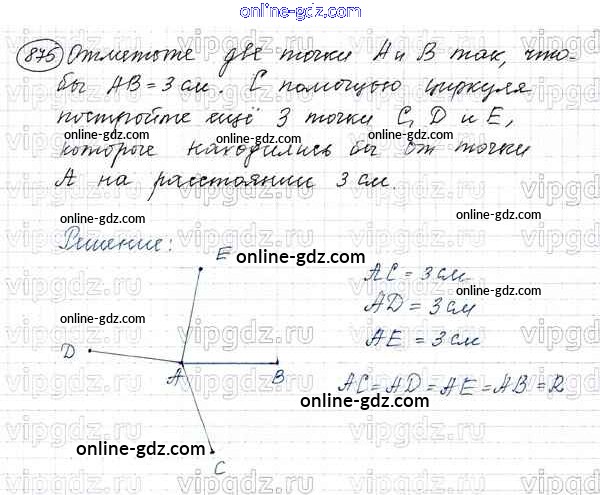 online-gdz.com
875 Отметьте две точки A и B так, что-
бы AB = 3 см. С помощью циркуля
постройте ещё 3 точки C, D и E,
которые находились бы от точки
A на расстоянии 3 см.
Решение:
E
AC = 3 см
AD = 3 см
AE = 3 см
D
A
B
AC = AD = AE = AB = R
C
online-gdz.com
online-gdz.com
online-gdz.com
online-gdz.com
online-gdz.com
online-gdz.com
online-gdz.com
online-gdz.com
online-gdz.com
online-gdz.com
vipgdz